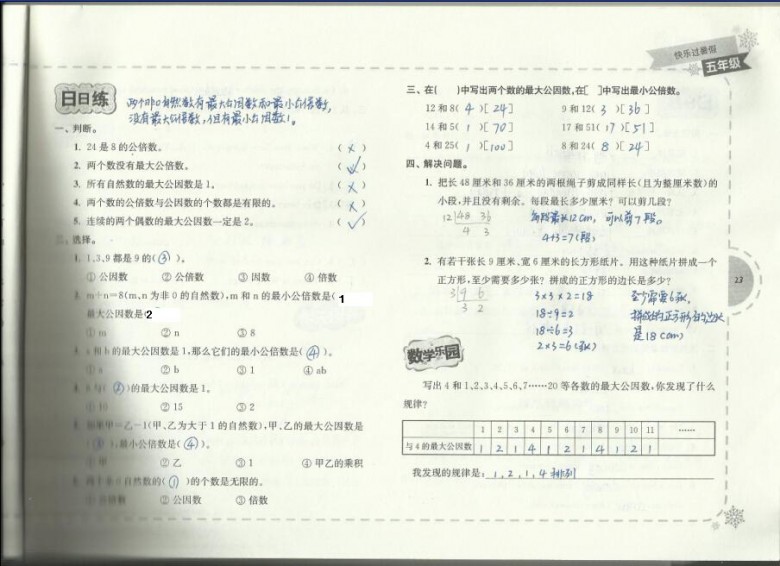 快乐过暑假
五年级
日日练
两个非0自然数有最大公因数和最小公倍数,
没有最大公倍数,但有最小公因数1。
一、判断。
1. 24是8的公倍数。 (×)
2. 两个数没有最大公倍数。 (√)
3. 所有自然数的最大公因数是1。 (×)
4. 两个数的公倍数与公因数的个数都是有限的。 (×)
5. 连续的两个偶数的最大公因数一定是2。 (√)
二、选择。
1. 1,3,9都是9的(③)。
①公因数 ②公倍数 ③因数 ④倍数
2. m÷n=8(m,n为非0的自然数),m和n的最小公倍数是(1
最大公因数是2
①m ②n ③8
3. a和b的最大公因数是1,那么它们的最小公倍数是(④)。
①a ②b ③1 ④ab
4. 8与(②)的最大公因数是1。
①16 ②15 ③2
5. 如果甲=乙-1(甲、乙为大于1的自然数),甲、乙的最大公因数是
(③),最小公倍数是(④)。
①甲 ②乙 ③1 ④甲乙的乘积
6. 两个非0自然数的(①)的个数是无限的。
①公倍数 ②公因数 ③倍数
三、在( )中写出两个数的最大公因数,在[ ]中写出最小公倍数。
12和8(4)[24] 9和12(3)[36]
14和5(1)[70] 17和51(17)[51]
4和25(1)[100] 8和24(8)[24]
四、解决问题。
1. 把长48厘米和36厘米的两根绳子剪成同样长(且为整厘米数)的
小段,并且没有剩余。每段最长多少厘米?可以剪几段?
12 48 36 每段最长12cm,可以剪7段。
4 3 4+3=7(段)
2. 有若干张长9厘米、宽6厘米的长方形纸片。用这种纸片拼成一个
正方形,至少需要多少张?拼成的正方形的边长是多少?
3 9 6 3×3×2=18 至少需要6张,
3 2 18÷9=2 拼成的正方形的边长
18÷6=3 是18cm)
2×3=6(张)
23
数学乐园
写出4和1、2、3、4、5、6、7……20等各数的最大公因数,你发现了什么
规律?
1 2 3 4 5 6 7 8 9 10 11 ……
与4的最大公因数 1 2 1 4 1 2 1 4 1 2 1
我发现的规律是:1,2,1,4排列